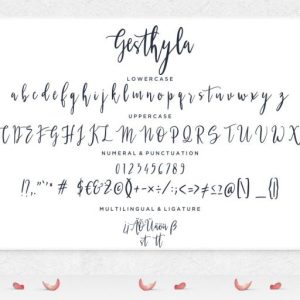 Gesthyla
LOWERCASE
abcdefghijklmnopqrstuvwxyz
UPPERCASE
ABCDEFGHIJKLMNOPQRSTUVWX
NUMERAL & PUNCTUATION
0123456789
MULTILINGUAL & LIGATURE
st tt